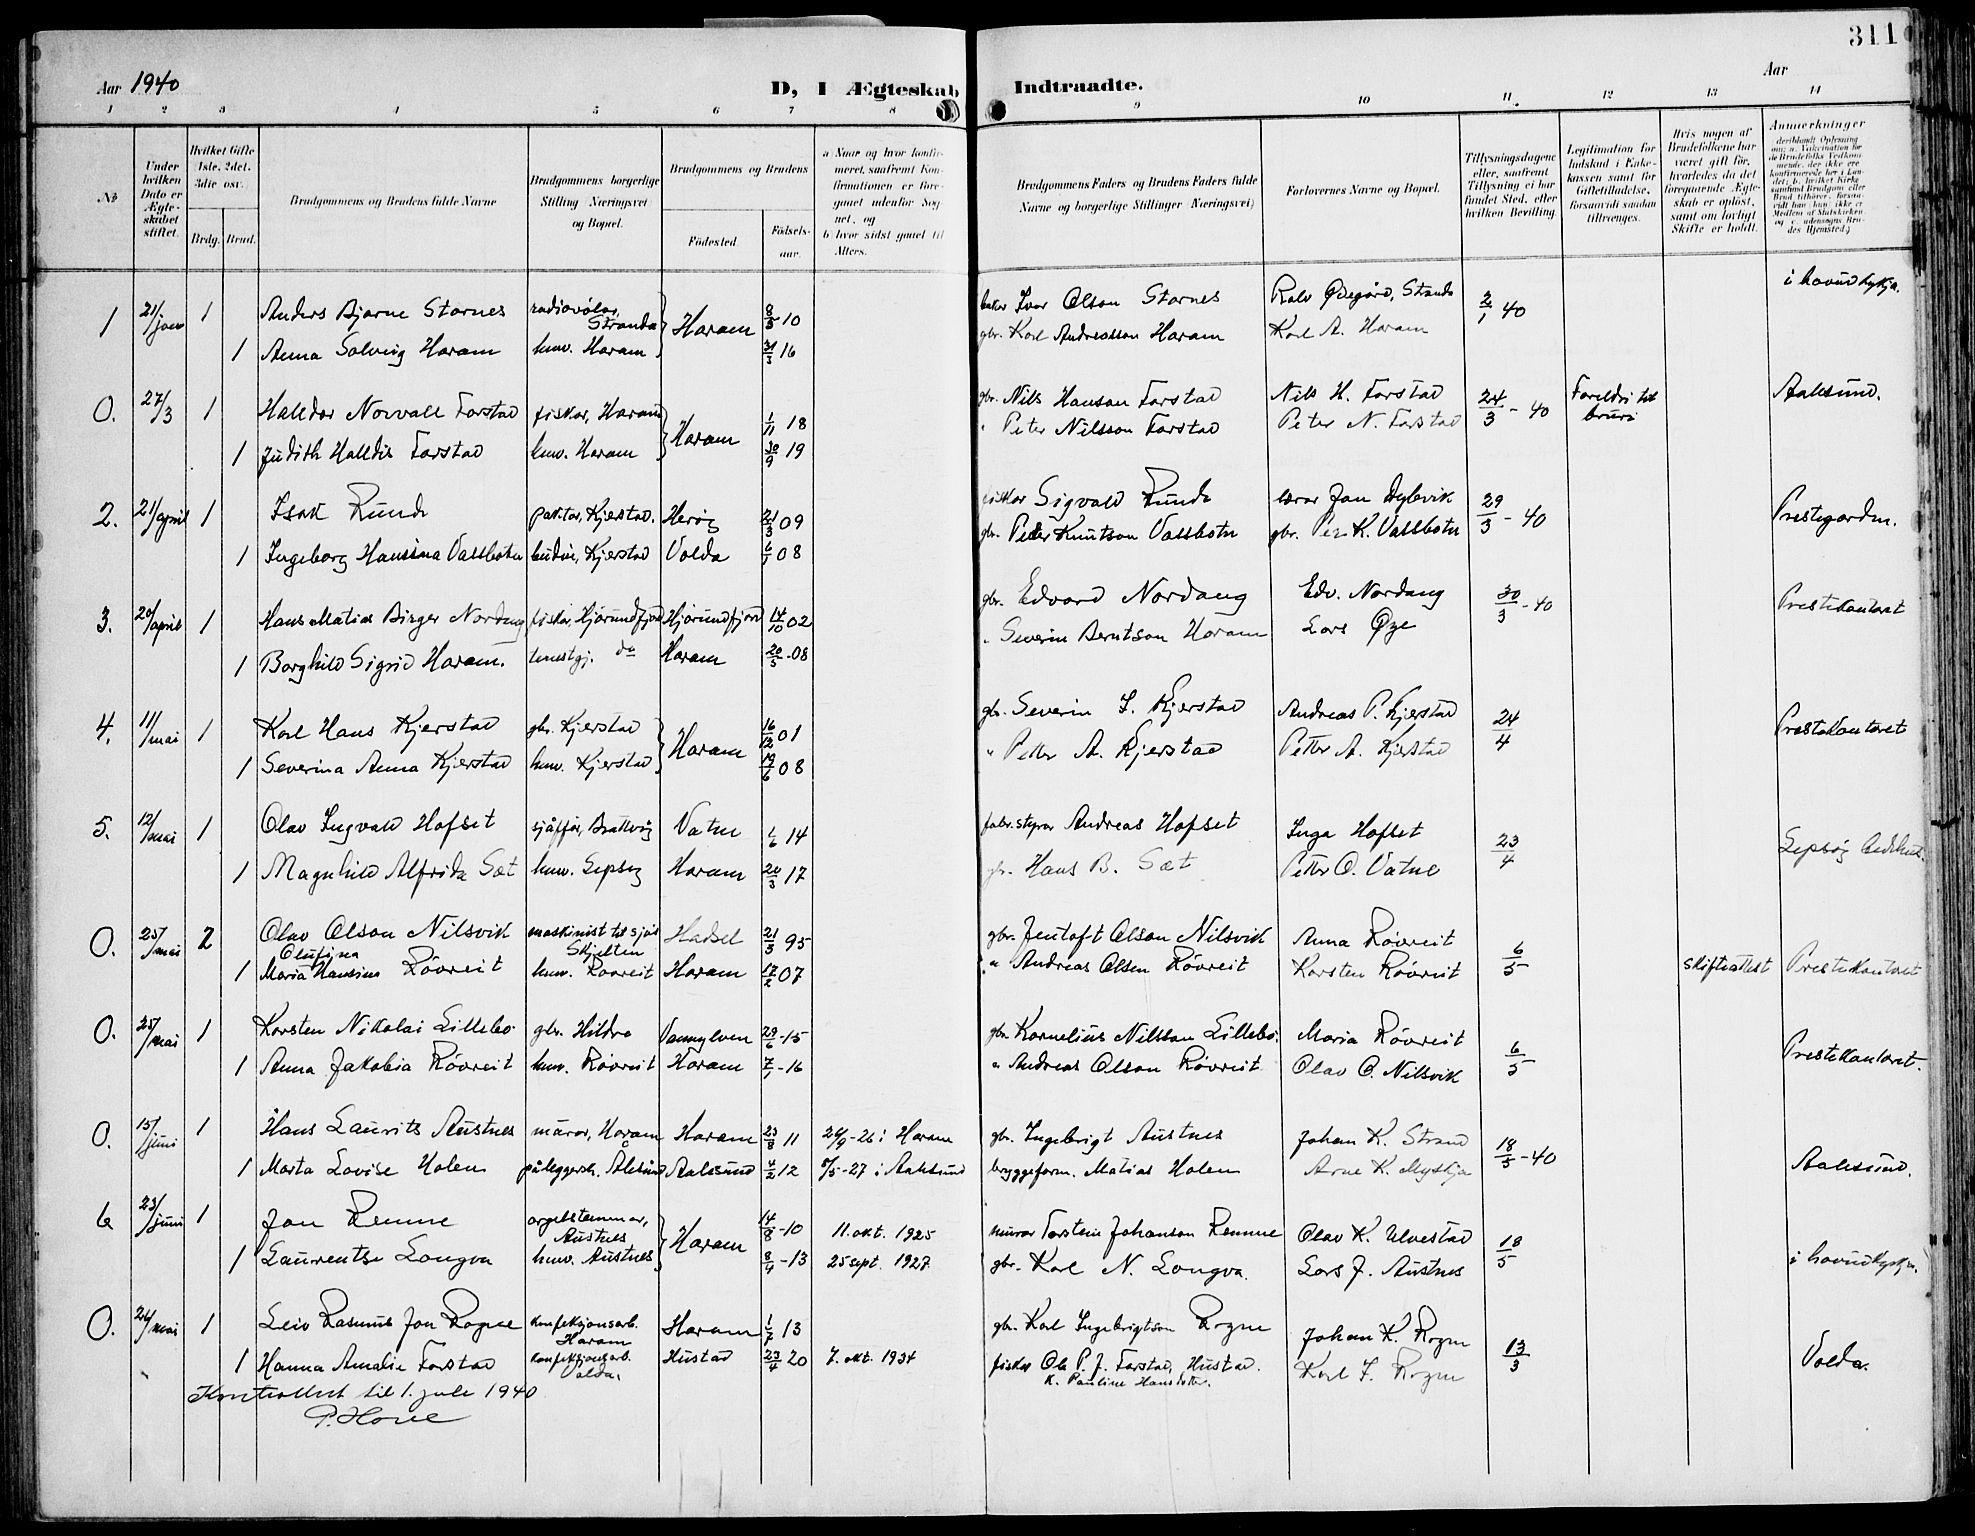 311
Aar 1940
D, I Ægteskab Indtraadte.
Aar
1 2 3 4 5 6 7 8 9 10 11. 12 13 14
No
Under hvilken Dato er Ægteskabet stiftet.
Hvilket Gifte 1ste, 2det, 3die osv.
Brdg. Brud.
Brudgommens og Brudens fulde Navne
Brudgommens borgerlige Stilling Næringsvei og Bopæl.
Brudgommens og Brudens
Födested. Födselsaar.
a Naar og hvor konfirmeret, saafremt Konfirmationen er foregaaet udenfor Sognet, og
b hvor sidst gaaet til Alters.
Brudgommens Faders og Brudens Faders fulde Navne og borgerlige Stillinger (Næringsvei)
Forlovernes Navne og Bopæl.
Tillysningsdagene eller, saafremt Tillysning ei har fundet Sted, efter hvilken Bevilling.
Legitimation for Indskud i Enkekassen samt for Giftetilladelse, forsaavidt saadan tiltrænges.
Hvis nogen af Brudefolkene har været gift før, hvorledes da det foregaaende Ægteskab er opløst, samt om lovligt Skifte er holdt.
Anmerkninger
1 21/jan 1 Anders Bjarne Stornes radiovölar, Stranda Haram 8/3 10 Ivar Olson Stornes Ralv Ødegård, Stranda 2/1 40 i hovudkyrkja.
1 Anna Solveig Haram huv. Haram 31/3 16 gbr. Karl Andreasson Haram Karl A. Haram
0. 27/3 1 Halldor Norvall Farstad fiskar, Haram Haram 1/11 18 gbr. Nils Hanson Farstad Nils H. Farstad 24/3 - 40 Foreldri til bruri Aalesund.
1 Judith Halldis Farstad huv. Haram 30/9 19 " Peter Nilsson Farstad Peter N. Farstad
2. 21/april 1 Isak Runde Kjerstad. Herøy 21/3 09 fiskar Sigvald Runde lærar Jan Dylevik 29/3 - 40 Prestegarden.
1 Ingeborg Hansina Vassbotn Kjerstad Volda 6/1 08 gbr. Peder Knutson Vassbotn gbr. Per K. Vassbotn
3. 20/april 1 Hans Matias Birger Nordang fiskar, Hjörundfjord Hjörundfjord 14/10 02 gbr. Edvard Nordang Edv. Nordang 30/3 - 40 Prestekontoret
1 Borghild Sigrid Haram. tenestgj. do Haram 20/5 - 08 " Severin Berntson Haram Lars Øye
4. 11/mai 1 Karl Hans Kjerstad gbr. Kjerstad Haram 16/12 01 gbr. Severin I. Kjerstad Andreas P. Kjerstad 24/4 Prestekontoret
1 Severina Anna Kjerstad huv. Kjerstad 19/6 08 " Petter A. Kjerstad Petter A. Kjerstad
5. 12/mai 1 Olav Ingvald Hofset sjåffør, Brattvåg Vatne 1/6 14 fabr.styrar Andreas Hofset Inga Hofset 23/4 Lepsøy bedehus.
1 Magnhild Alfrida Sæt huv. Lepsøy Haram 20/3 17 gbr. Hans B. Sæt Petter O. Vatne
0. 25/mai 2 Olav Olson Nilsvik maskinist til sjøs Skjelten Hadsel 21/3 95 gbr. Jentoft Olson Nilsvik Anna Rövreit 6/5 skifteattest Prestekontoret
1 Olufina Maria Hansine Rövreit huv. Rovreit Haram 17/2 07 " Andreas Olsen Rövreit Karsten Rövreit
0. 25/mai 1 Karsten Nikolai Lillebö gbr. Hildre Vannylven 29/6 - 15 gbr. Kornelius Nilsson Lillebö. Maria Rövreit 6/5 Prestekontoret.
1 Anna Jakobia Rövreit huv. Rövreit Haram 7/1 - 16 " Andreas Olson Rövreit Olav O. Nilsvik
0. 15/juni 1 Hans Laurits Austnes mürar, Haram Haram 23/8 11 26/9 - 26 i Haram gbr. Ingebrigt Austnes Johan K. Strand 18/5 - 40 Aalesund.
1 Marta Lovise Holen påleggersk. Ålesund Aalesund 4/2 12 8/5 - 27 i Aalesund bryggeform. Matias Holen Arne K. Myskja
6 23/juni 1 Jon Remme orgelstemmar, Austnes Haram 14/8 - 10 11. okt. 1925 murar Torstein Johanson Remme Olav K. Ulvestad 18/5 i hovudkyrkja.
1 Laurentse Longva huv. Austnes 8/4 - 13 25 sept. 1927. gbr. Karl N. Longva. Lars J. Austnes
0. 26/mai 1 Leiv Rasmus Jon Rogne konfeksjonsarb. Haram Haram 1/2 13 gbr. Karl Ingebrigtson Rogne Johan K. Rogne 13/3 Volda.
1 Hanna Amalie Farstad konfeksjonsarb. Volda. Hustad 23/4 20 7. okt. 1934 fiskar Ole P. J. Farstad, Hustad. K. Pauline Hansdotter. Karl I. Rogne
Kontrollert til 1. juli 1940
P. Hove